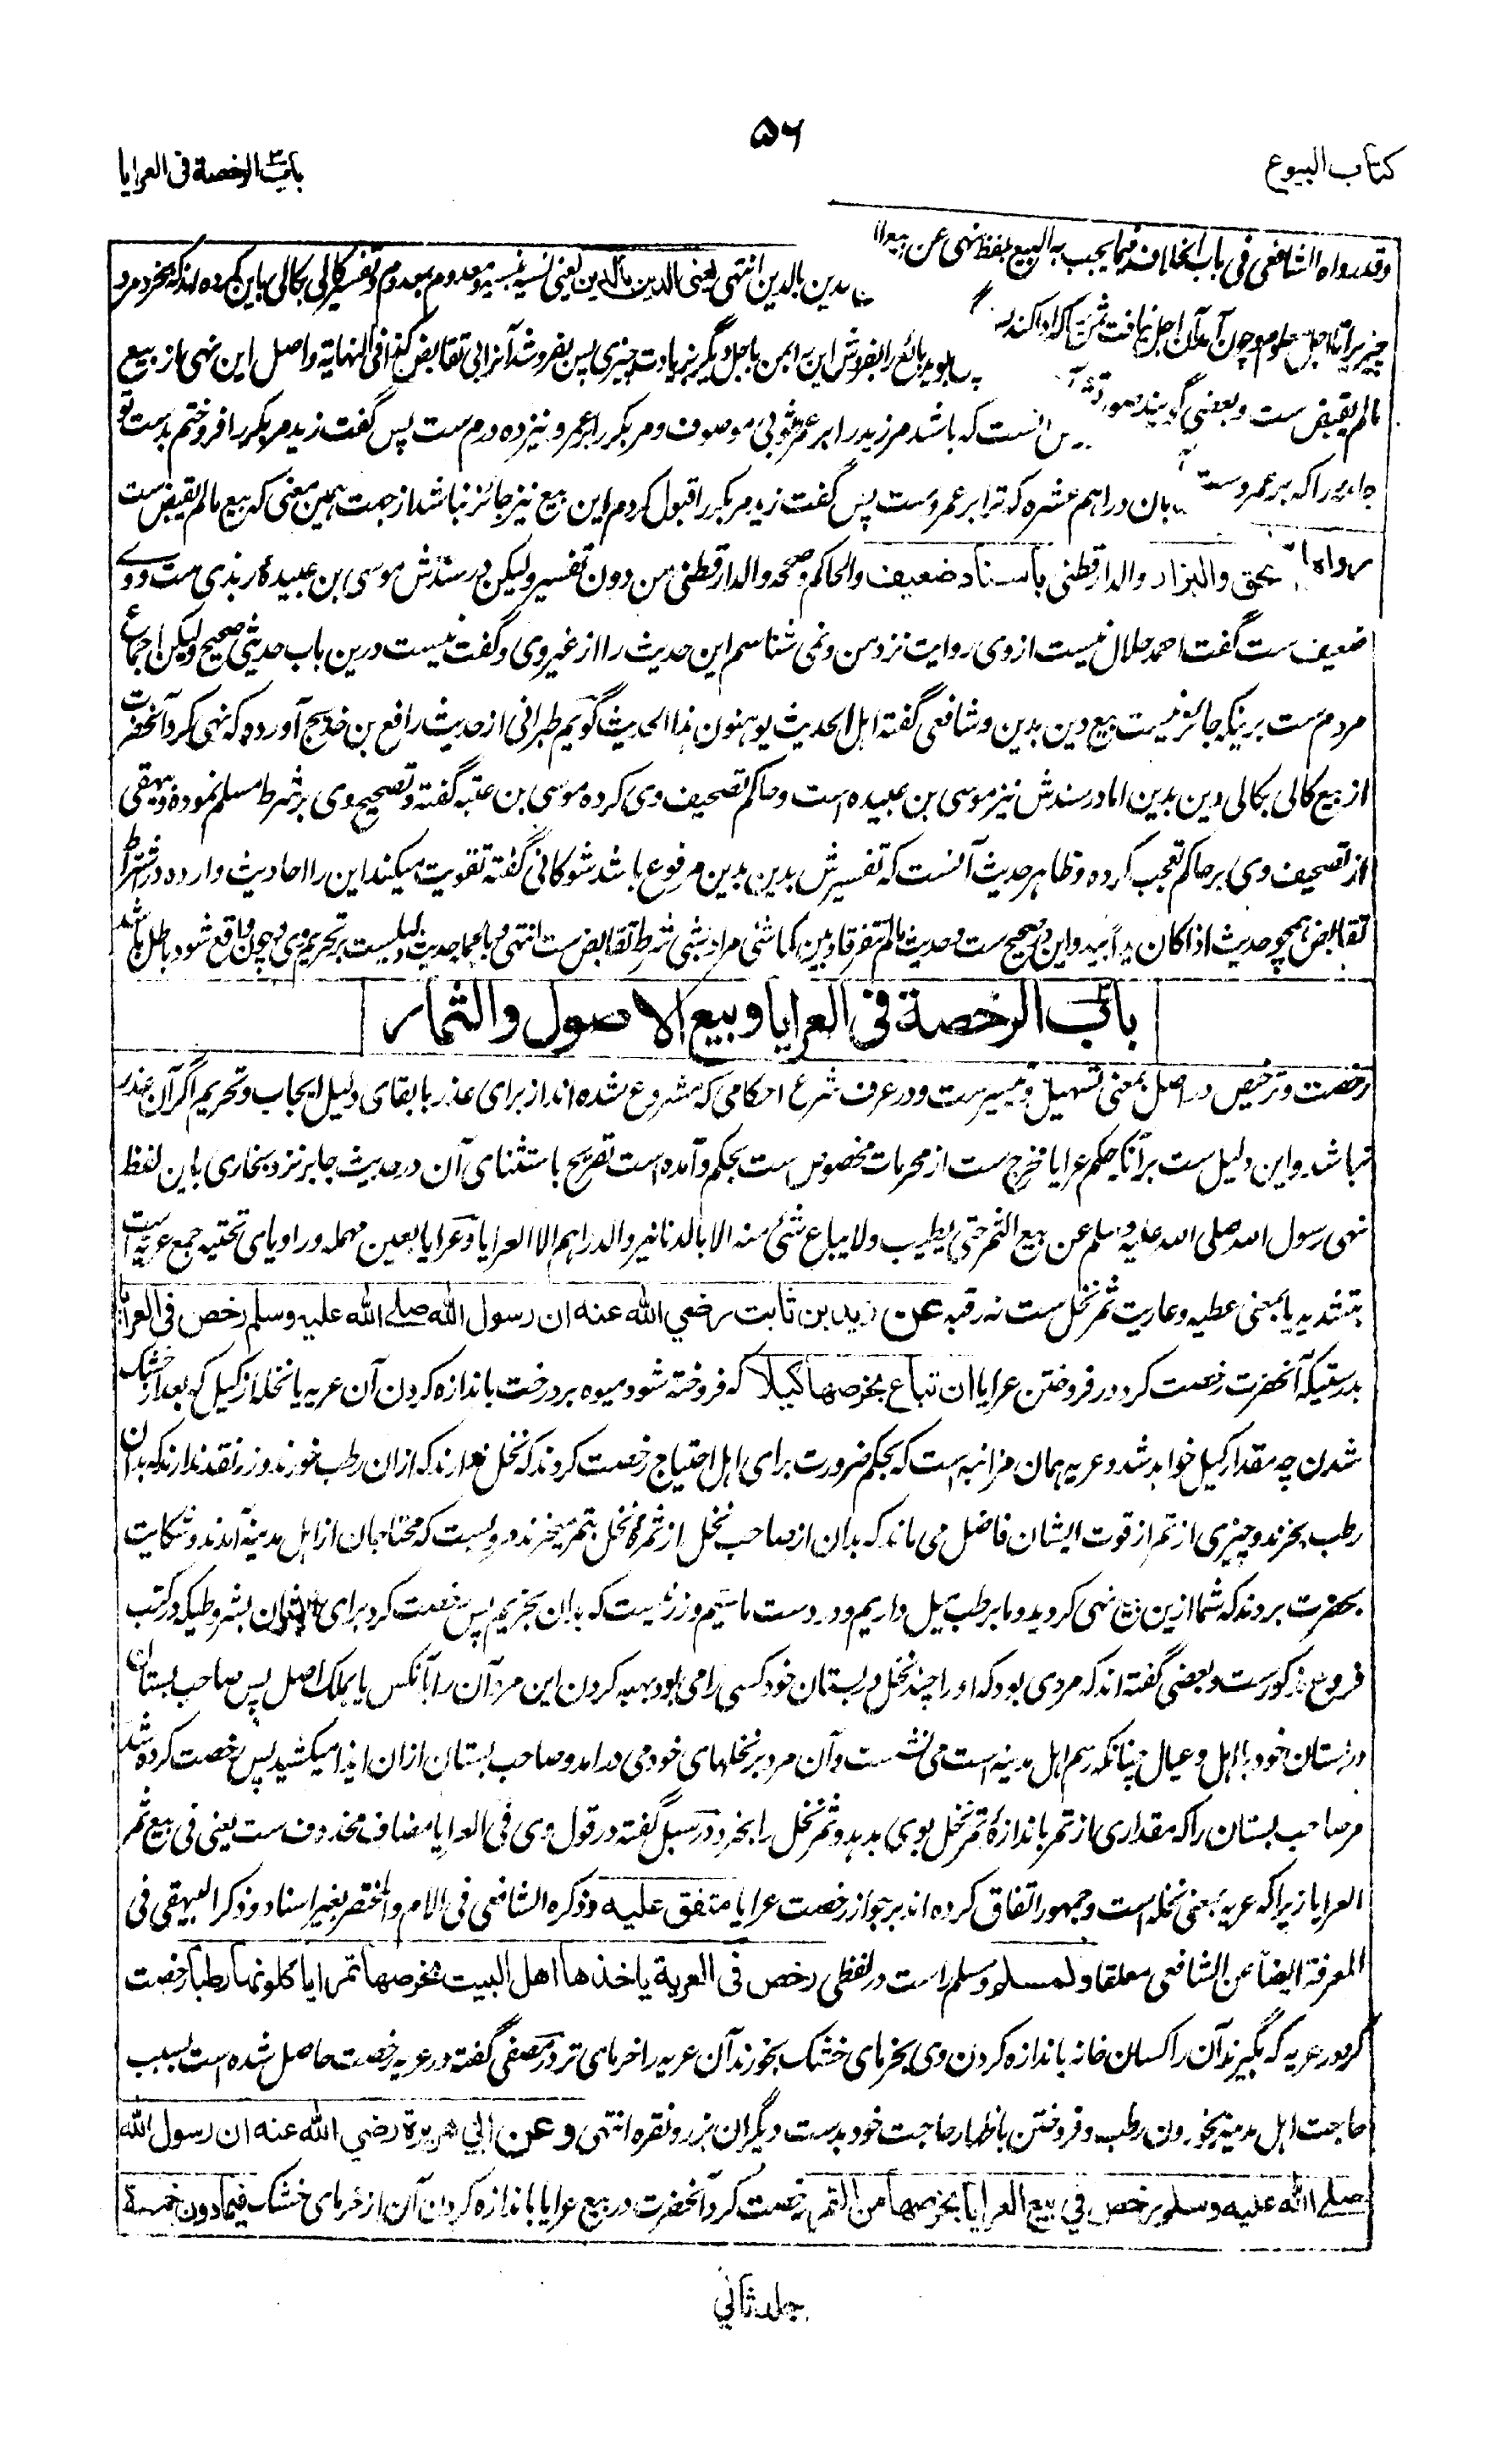 ۵۶
کتاب البیوع
باب الرخصة فی العرایا
وقد رواه الشافعی فی باب الخلاف فیما یجب به البیع بلفظ نهی عن بیع الدین بالدین انتهی یعنی الدین بالدین یعنی نسیه بنسیه ومعدوم بمعدوم وتفسیر کالی بکالی باین کرده اند که بخرد مرد
چیزیرا تا اجل معلوم وچون آمد آن اجل نیافت ثمن که ادا کند پس بگوید بائع را بفروش این به من باجل دیگر بزیادت چیزی پس بفروشد آنرا بی تقابض کذا فی النهایة واصل این نهی از بیع
مالم یقبض ست وبعضی گویند صورتش آنست که باشد مر زید را بر عمر ثوبی موصوف ومر بکر را بر عمرو نیز ده درم ست پس گفت زید مر بکر را فروختم بدست تو
جامه را که بر عمروست بان دراهم عشره که ترا بر عمروست پس گفت زید مر بکر را قبول کردم این بیع نیز جائز نباشد از جهت همین معنی که بیع مالم یقبض ست
رواه اسحق والبزار والدارقطنی باسناد ضعیف والحاکم وصححه والدارقطنی من دون تفسیر ولیکن در سندش موسی بن عبیدة ربذی ست ووے
ضعیف ست گفت احمد حلال نیست از وی روایت نزد من ونمی شناسم این حدیث را از غیر وی وگفت نیست درین باب حدیثی صحیح ولیکن اجماع
مردم ست برینکه جائز نیست بیع دین بدین وشافعی گفته اهل الحدیث یوهنون هذا الحدیث گویم طبرانی از حدیث رافع بن خدیج آورده که نهی کرد آنحضرت
از بیع کالی بکالی دین بدین اما در سندش نیز موسی بن عبیده است وحاکم تصحیف وی کرده موسی بن عقبه گفته وتصحیح وی بر شرط مسلم نموده وبیهقی
از تصحیف وی بر حاکم تعجب کرده وظاهر حدیث آنست که تفسیرش بدین بدین مرفوع باشد شوکانی گفته تقویت میکند این را احادیث وارده در اشتراط
تقابض همچو حدیث اذا کان یدا بید واین در صحیح ست وحدیث مالم تتفرقا وبینکما شئ مراد بشئ شرط تقابض ست انتهی وبالجمله حدیث دلیلست بر تحریم وی وچون واقع شود باطل باشد
باب الرخصة فی العرایا وبیع الاصول والثمار
رخصت وترخیص در اصل بمعنی تسهیل وتیسیرست ودر عرف شرع احکامی که مشروع شده اند از برای عذر با بقای دلیل ایجاب وتحریم اگر آن عذر
نباشد واین دلیل ست بر آنکه حکم عرایا مخرج ست از محرمات مخصوص ست بحکم وآمده است تصریح باستثنای آن در حدیث جابر نزد بخاری باین لفظ
نهی رسول الله صلی الله علیه وسلم عن بیع الثمر حتی یطیب ولا یباع شئ منه الا بالدنانیر والدراهم الا العرایا وعرایا بعین مهمله ورا ویای تحتیه جمع عریه است
بتشدید یا بمعنی عطیه وعاریت ثمر نخل ست نه رقبه عن زید بن ثابت رضي الله عنه ان رسول الله صلے الله علیه وسلم رخص فی العرایا
بدرستیکه آنحضرت رخصت کرد در فروختن عرایا ان تباع بخرصها کیلا که فروخته شود میوه بر درخت باندازه کردن آن عریه یا نخله از کیل که بعد از خشک
شدن چه مقدار کیل خواهد شد وعریه همان مزابنه است که بحکم ضرورت برای اهل احتیاج رخصت کردند که نخل ندارند که ازان رطب خورند وزر نقد ندارند که بدان
رطب بخرند وچیزی از تمر از قوت ایشان فاضل می ماند که بدان از صاحب نخل از ثمرۀ نخل بتمر میخرند مرویست که محتاجان از اهل مدینه آمدند وشکایت
بحضرت بردند که شما ازین بیع نهی کردید وما بر رطب میل داریم ودر دست ما سیم وزر نیست که بدان بخریم پس رخصت کرد برای ایشان بشروطیکه در کتب
فروع مذکورست وبعضی گفته اند که مردی بود که او را چند نخل در بستان خود کسی را می بود بهبه کردن این مرد آن را بآنکس یا بملک اصل پس صاحب بستان
در بستان خود با اهل وعیال چنانکه رسم اهل مدینه است می نشست وآن مرد بر نخلهای خود می درآمد وصاحب بستان ازان ایذا میکشید پس رخصت کرده شد
مر صاحب بستان را که مقداری از تمر باندازۀ ثمر نخل بوی بدهد وثمر نخل را بخرد در سبل گفته در قول وی فی العرایا مضاف محذوف ست یعنی فی بیع ثمر
العرایا زیرا که عریه بمعنی نخله است وجمهور اتفاق کرده اند بر جواز رخصت عرایا متفق علیه وذکره الشافعی فی الام والمختصر بغیر اسناد وذکر البیهقی فی
المعرفة ایضا عن الشافعی معلقا ولمسلم ومسلم راست در لفظی رخص فی العریة یاخذها اهل البیت بخرصها تمرا یاکلونها رطبا رخصت
کرد در عریه که بگیرند آن را کسان خانه باندازه کردن وی بخرمای خشک بخورند آن عریه را خرمای تر در مصفی گفته در عریه رخصت حاصل شده است بسبب
حاجت اهل مدینه بخوردن رطب وفروختن باظهار حاجت خود بدست دیگران بزر ونقره انتهی وعن ابي هریرة رضي الله عنه ان رسول الله
صلے الله علیه وسلم رخص في بیع العرایا بخرصها من التمر رخصت کرد آنحضرت در بیع عرایا باندازه کردن آن از خرمای خشک فیما دون خمسة
جلد ثاني